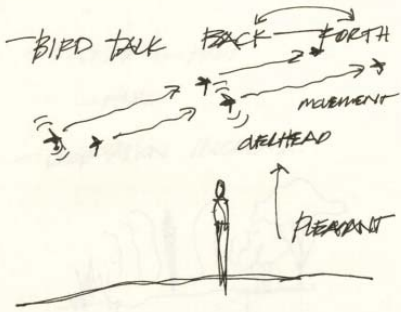 - BIRD TALK BACK FORTH
MOVEMENT
OVERHEAD
PLEASANT